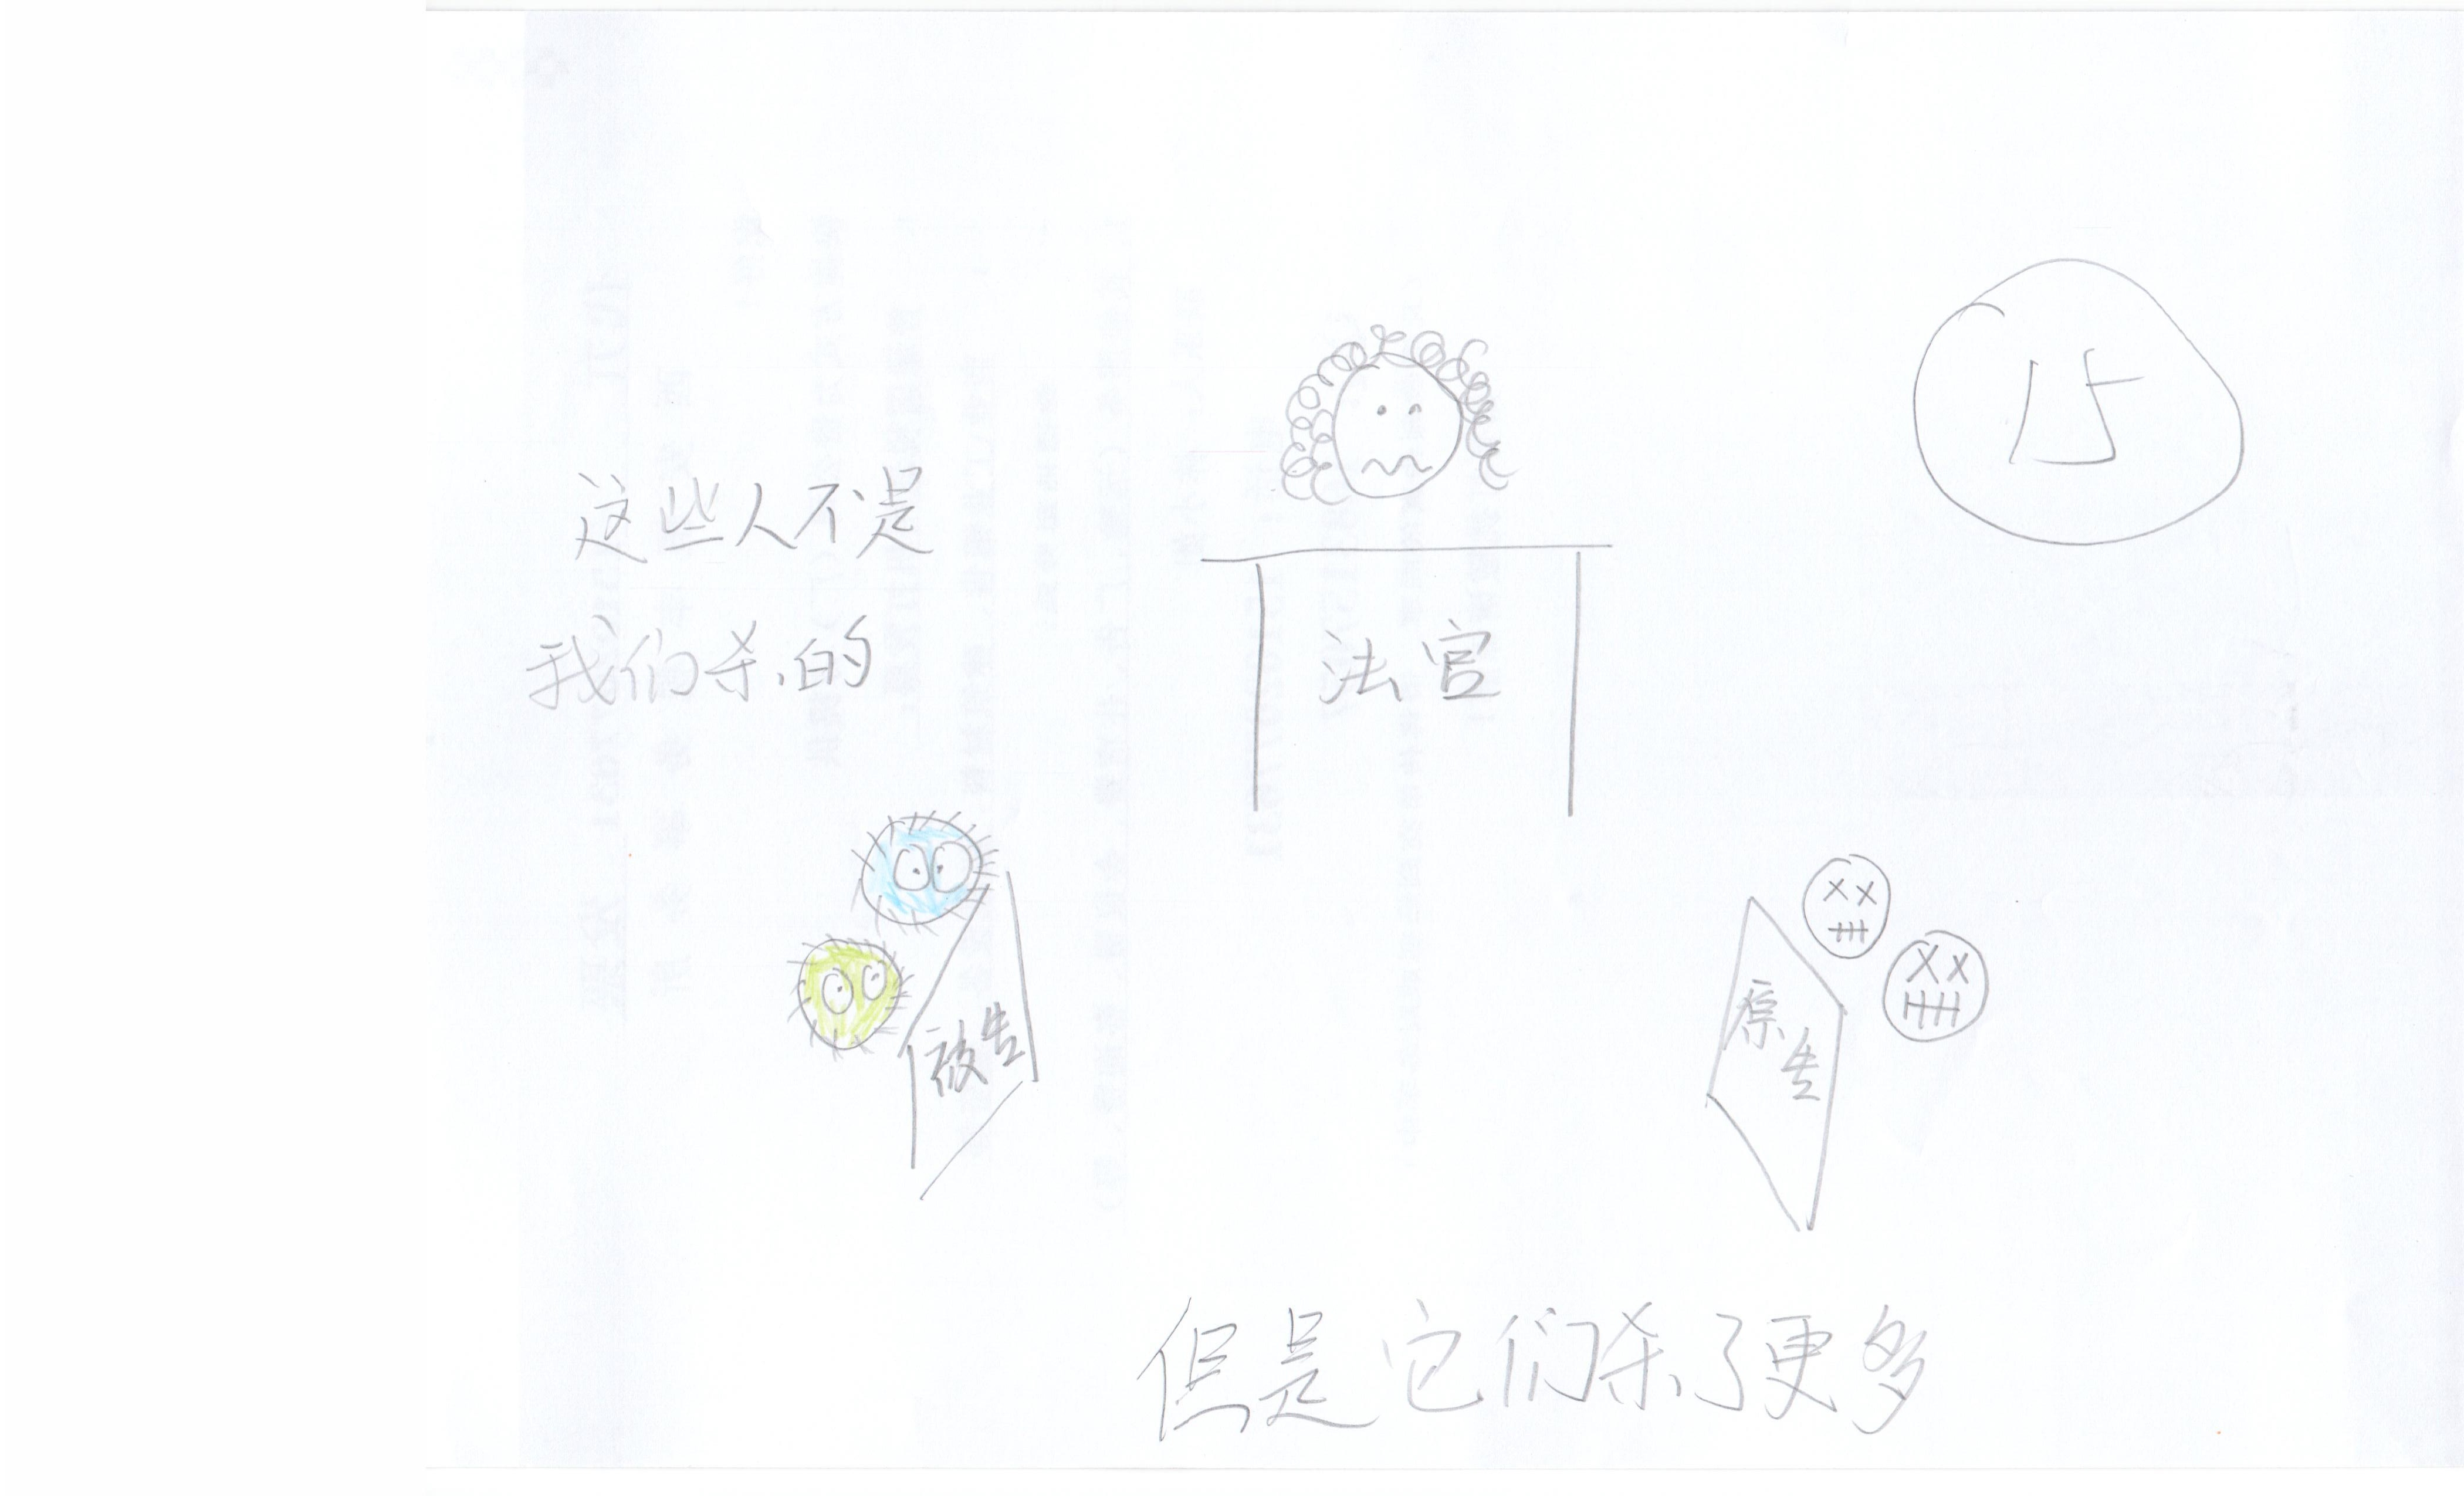 这些人不是
我们杀的
法官
被告
原告
但是它们杀了更多